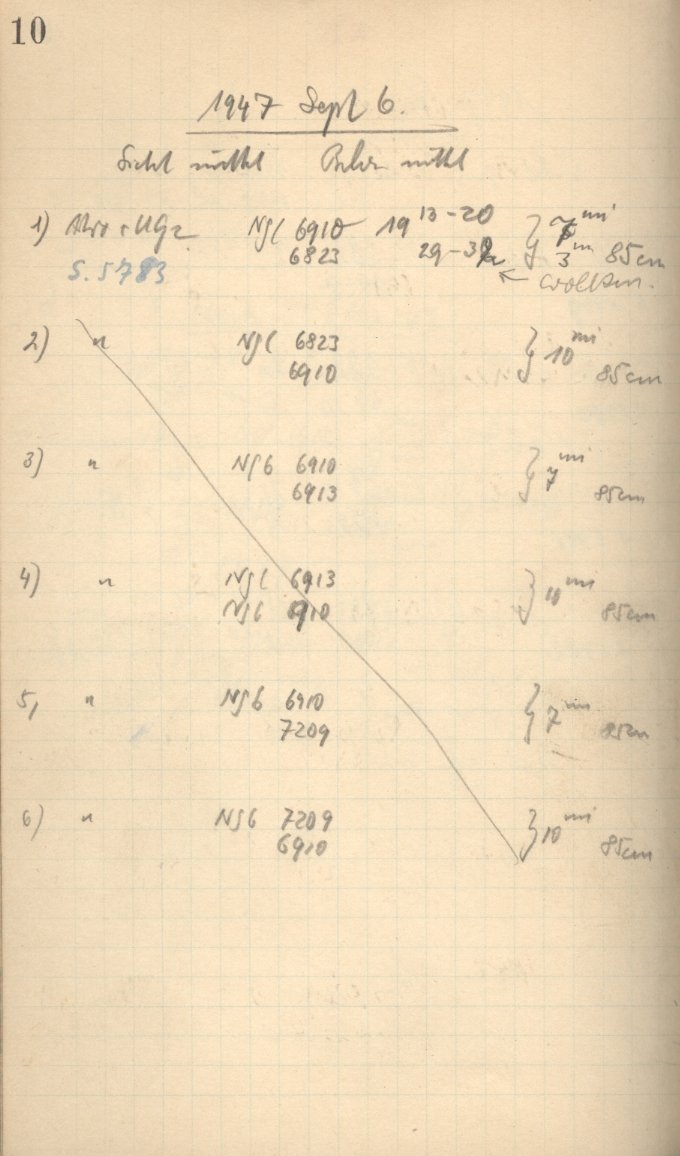 10
1947 Sept 6.
Sicht mittel
1) NGC 6910 19 13-20 } 7 mi
6823 29-32 3 m 85cm
S. 5783 ← Wolken.
2) " NGC 6823 } 10 mi
6910 85cm
3) " NGC 6910 } 7 mi
6913 85cm
4) " NGC 6913 } 10 mi
NGC 6910 85cm
5) " NGC 6910 } 7 mi
7209 85cm
6) " NGC 7209 } 10 mi
6910 85cm